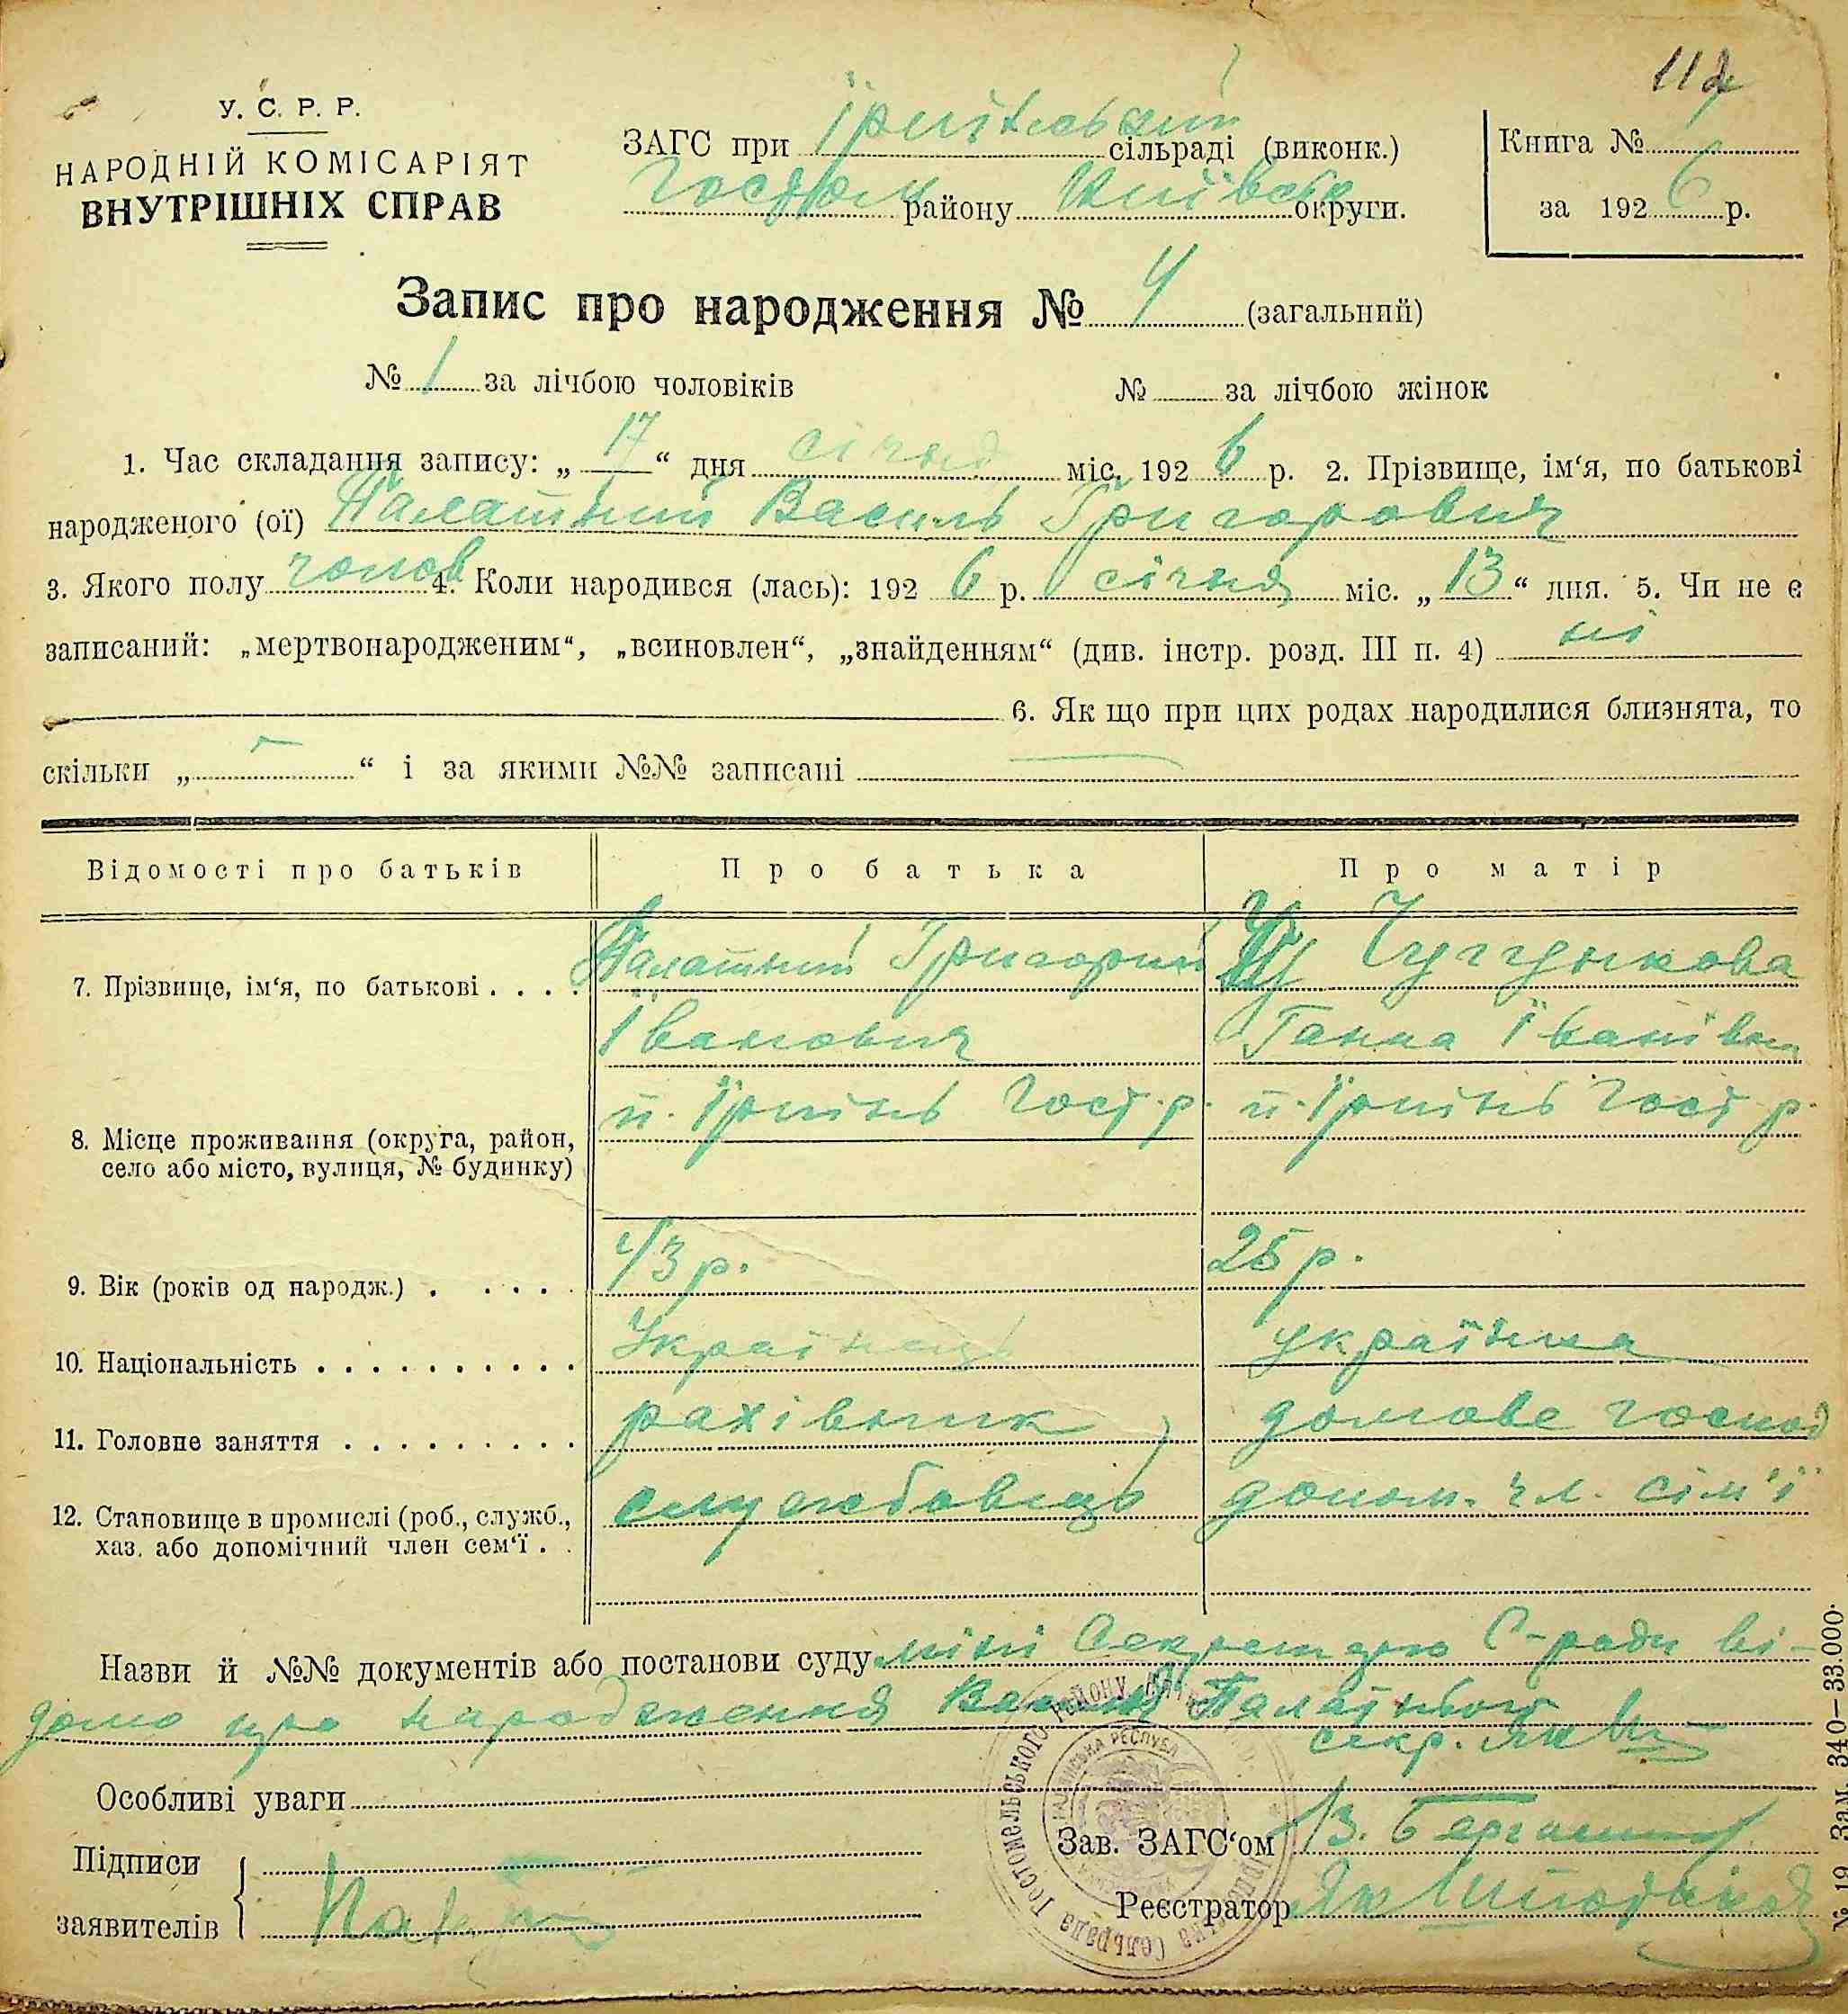 117
У. С. Р. Р.
НАРОДНІЙ КОМІСАРІЯТ
ВНУТРІШНІХ СПРАВ
ЗАГС при Їрпінській сільраді (виконк.)
Гостом району Київськ округи.
Книга №
за 1926 р.
Запис про народження № 4 (загальний)
№ 1 за лічбою чоловіків № за лічбою жінок
1. Час складання запису: „17“ дня січня міс. 1926 р. 2. Прізвище, ім‘я, по батькові
народженого (ої) Палатний Василь Григорович
3. Якого полу чолов 4. Коли народився (лась): 1926 р. січня міс. „13“ дня. 5. Чи не є
записаний: „мертвонародженим“, „всиновлен“, „знайденням“ (див. інстр. розд. III п. 4) ні
6. Як що при цих родах народилися близнята, то
скільки „ “ і за якими №№ записані
Відомості про батьків Про батька Про матір
7. Прізвище, ім‘я, по батькові . . . . Палатний Григорий Чуггункова
Іванович Ганна Їванівна
8. Місце проживання (округа, район, село або місто, вулиця, № будинку) п. Їрпінь Гост. р. п. Їрпінь Гост р.
9. Вік (років од народж.) . . . . . 43 р. 25 р.
10. Національність . . . . . . . . . . Українець українка
11. Головне заняття . . . . . . . . . . рахівник, домове господ
12. Становище в промислі (роб., служб., хаз. або допомічний член сем‘ї . . службовець допом. чл. сім'ї
Назви й №№ документів або постанови суду мінї Секретарю С-ради ві-
домо про народження Василя Палатного
секр.
Особливі уваги
Підписи
заявителів
Зав. ЗАГС‘ом
Реєстратор
№ 19 Зам. 340—33.000.